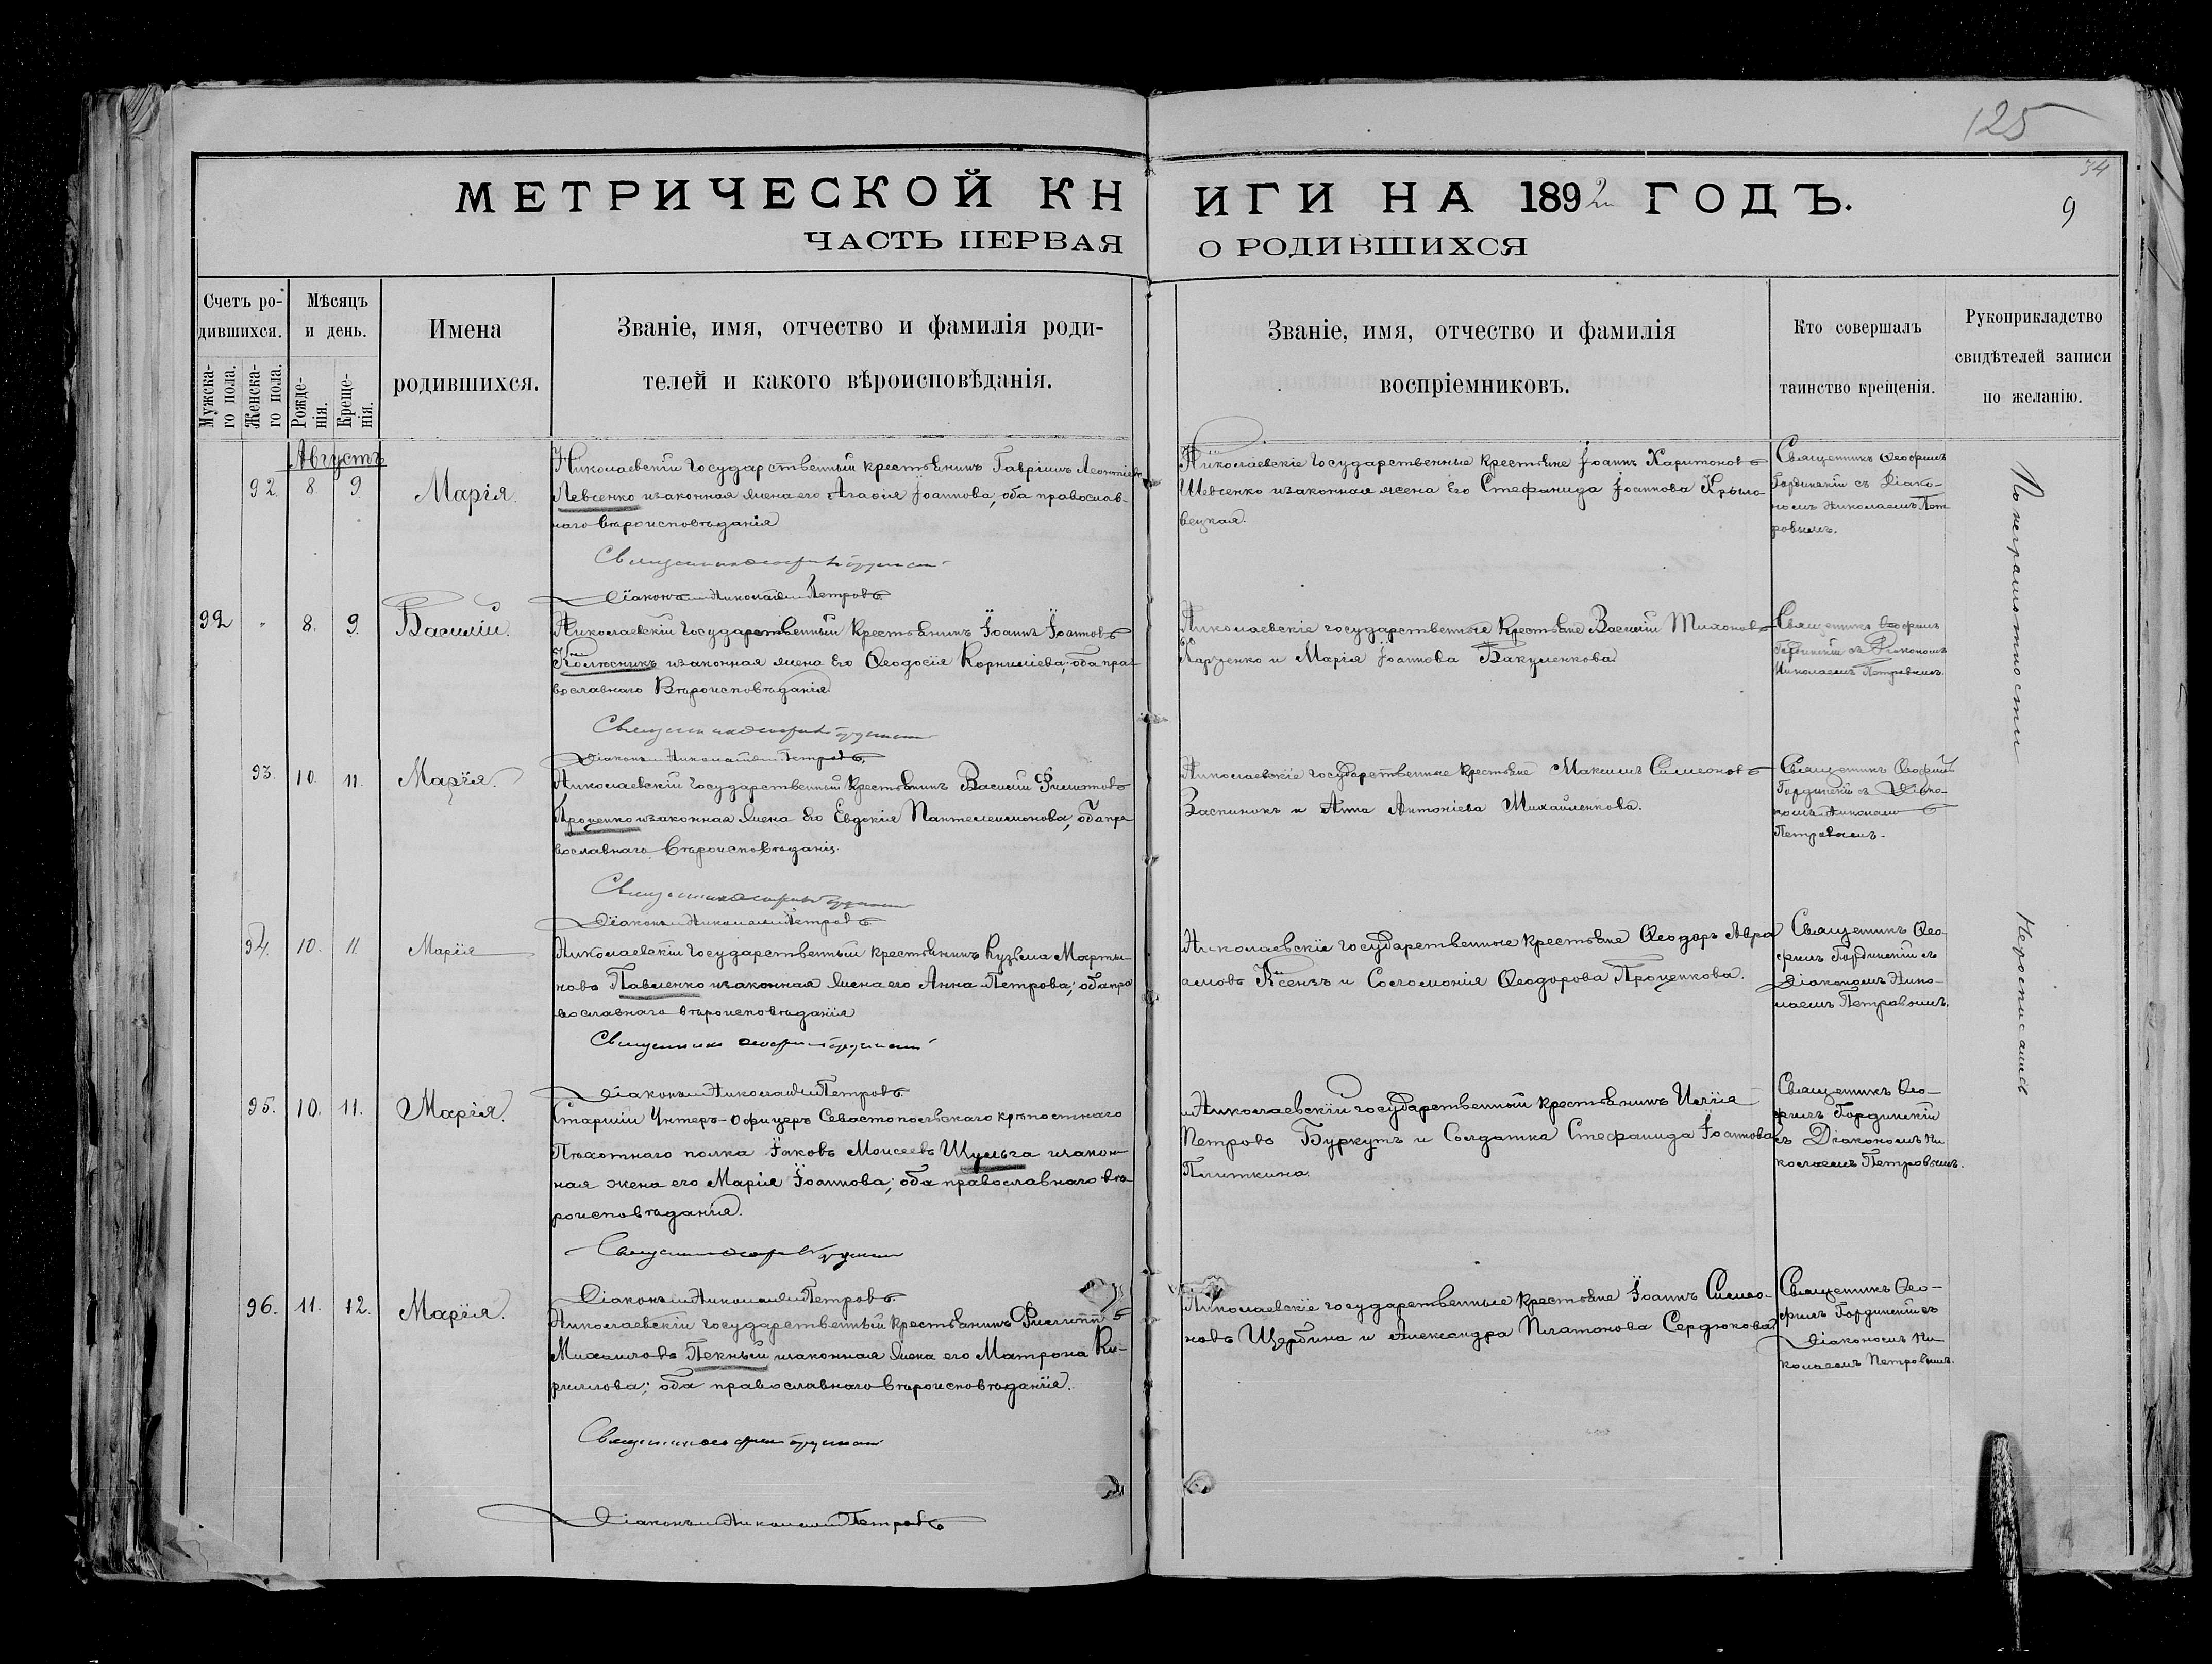 125
34
9
МЕТРИЧЕСКОЙ КНИГИ НА 1892 ГОДЪ.
ЧАСТЬ ПЕРВАЯ О РОДИВШИХСЯ
Счетъ ро-
дившихся.
Мужска-
го пола.
Женска-
го пола.
Мѣсяцъ
и день.
Рожде-
нія.
Креще-
нія.
Имена
родившихся.
Званіе, имя, отчество и фамилія роди-
телей и какого вѣроисповѣданія.
Званіе, имя, отчество и фамилія
воспріемниковъ.
Кто совершалъ
таинство крещенія.
Рукоприкладство
свидѣтелей записи
по желанію.
Августъ
92 8 9 Марія.
Николаевскій государственный крестьянинъ Гавріилъ Леонтіевъ
Левченко изаконная жена его Агафія Іоаннова, оба православ-
наго вѣроисповѣданія
Священникъ
Діаконъ Николай Петровъ
Николаевскіе государственные крестьяне Іоаннъ Харитоновъ
Шевченко изаконная жена Его Стефанида Іоаннова Крыло-
вецкая.
Священникъ Ѳеофилъ
Гординскій съ Діако-
номъ Николаемъ Пет
ровымъ.
92 " 8. 9. Василій.
Николаевскій государственный крестьянинъ Іоаннъ Іоанновъ
Колѣсникъ изаконная жена Его Ѳеодосія Корниліева, оба пра-
вославнаго Вѣроисповѣданія.
Священникъ
Діаконъ Николай Петровъ
Николаевскіе государственные крестьяне Василій Тихоновъ
Харченко и Марія Іоаннова Бакуменкова
Священникъ Ѳеофилъ
Гординскій съ Діакономъ
Николаемъ Петровымъ.
93. 10. 11. Марія.
Николаевскій государственный крестьянинъ Василій Филатовъ
Проценко изаконная жена Его Евдокія Пантелеимонова, оба пра
вославнаго вѣроисповѣданія.
Священникъ
Діаконъ Николай Петровъ
Николаевскіе государственные крестьяне Максимъ Симеоновъ
Заспинокъ и Анна Антоніева Михайленкова.
Священникъ Ѳеофилъ
Гординскій съ Діако-
номъ Николаемъ
Петровымъ.
94. 10. 11 Марія
Николаевскій государственный крестьянинъ Кузьма Марты-
новъ Павленко изаконная жена его Анна Петрова; оба пра
вославнаго вѣроисповѣданія
Священникъ
Діаконъ Николай Петровъ
Николаевскіе государственные крестьяне Ѳеодоръ Авра
амовъ Ксензъ и Соломонія Ѳеодорова Проценкова.
Священникъ Ѳео-
филъ Гординскій съ
Діакономъ Нико-
лаемъ Петровымъ.
95. 10. 11. Марія.
Старшій Унтеръ-офицеръ Севастопольскаго крѣпостнаго
Пѣхотнаго полка Іаковъ Моисеевъ Шульга изакон-
ная жена его Марія Іоаннова; оба православнаго вѣ
роисповѣданія.
Священникъ
Діаконъ Николай Петровъ
Николаевскій государственный крестьянинъ Илія
Петровъ Буркутъ и Солдатка Стефанида Іоаннова
Плиткина.
Священникъ Ѳео-
филъ Гординскій
съ Діакономъ Ни
колаемъ Петровымъ.
96. 11. 12. Марія.
Николаевскій государственный крестьянинъ Филиппъ
Михаиловъ Пекный изаконная жена его Матрона Ки-
риллова; оба православнаго вѣроисповѣданія.
Священникъ
Діаконъ Николай Петровъ
Николаевскіе государственные крестьяне Іоаннъ Симео-
новъ Щербина и Александра Платонова Сердюкова.
Священникъ Ѳео-
филъ Гординскій съ
Діакономъ Ни
колаемъ Петровымъ.
По неграмотности
Нерасписались